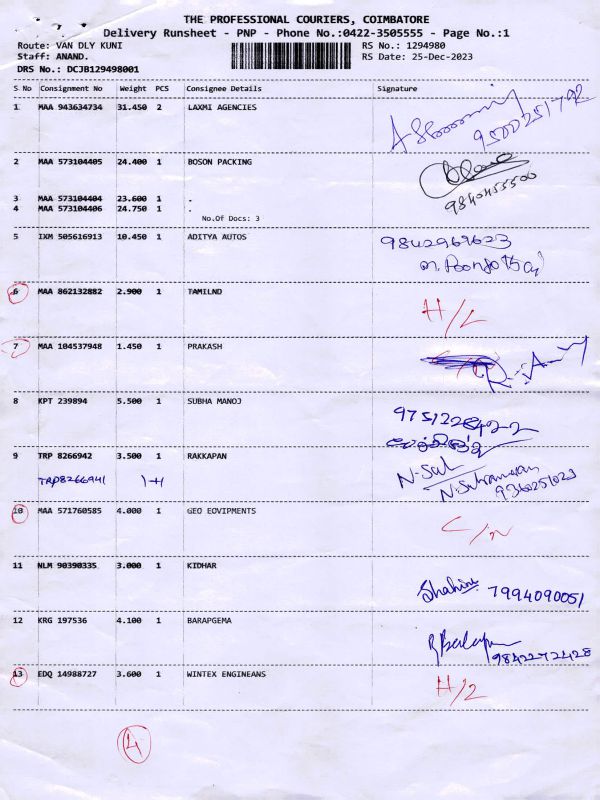 THE PROFESSIONAL COURIERS, COIMBATORE
Delivery Runsheet - PNP - Phone No.:0422-3505555 - Page No.:1
Route: VAN DLY KUNI RS No.: 1294980
Staff: ANAND. RS Date: 25-Dec-2023
DRS No.: DCJB129498001
S No Consignment No Weight PCS Consignee Details Signature
1 MAA 943634734 31.450 2 LAXMI AGENCIES
9500251792
2 MAA 573104405 24.400 1 BOSON PACKING
9840455500
3 MAA 573104404 23.600 1 .
4 MAA 573104406 24.750 1 .
No.Of Docs: 3
5 IXM 505616913 10.450 1 ADITYA AUTOS 9842969623
6 MAA 862132882 2.900 1 TAMILND H/L
7 MAA 104537948 1.450 1 PRAKASH
8 KPT 239894 5.500 1 SUBHA MANOJ
9 TRP 8266942 3.500 1 RAKKAPAN N.Sal
TRP8266941 1-H
9360251023
10 MAA 571760585 4.000 1 GEO EOVIPMENTS
11 NLM 90390335 3.000 1 KIDHAR
Shahini 7994090051
12 KRG 197536 4.100 1 BARAPGEMA
9842272428
13 EDQ 14988727 3.600 1 WINTEX ENGINEANS H/L
4